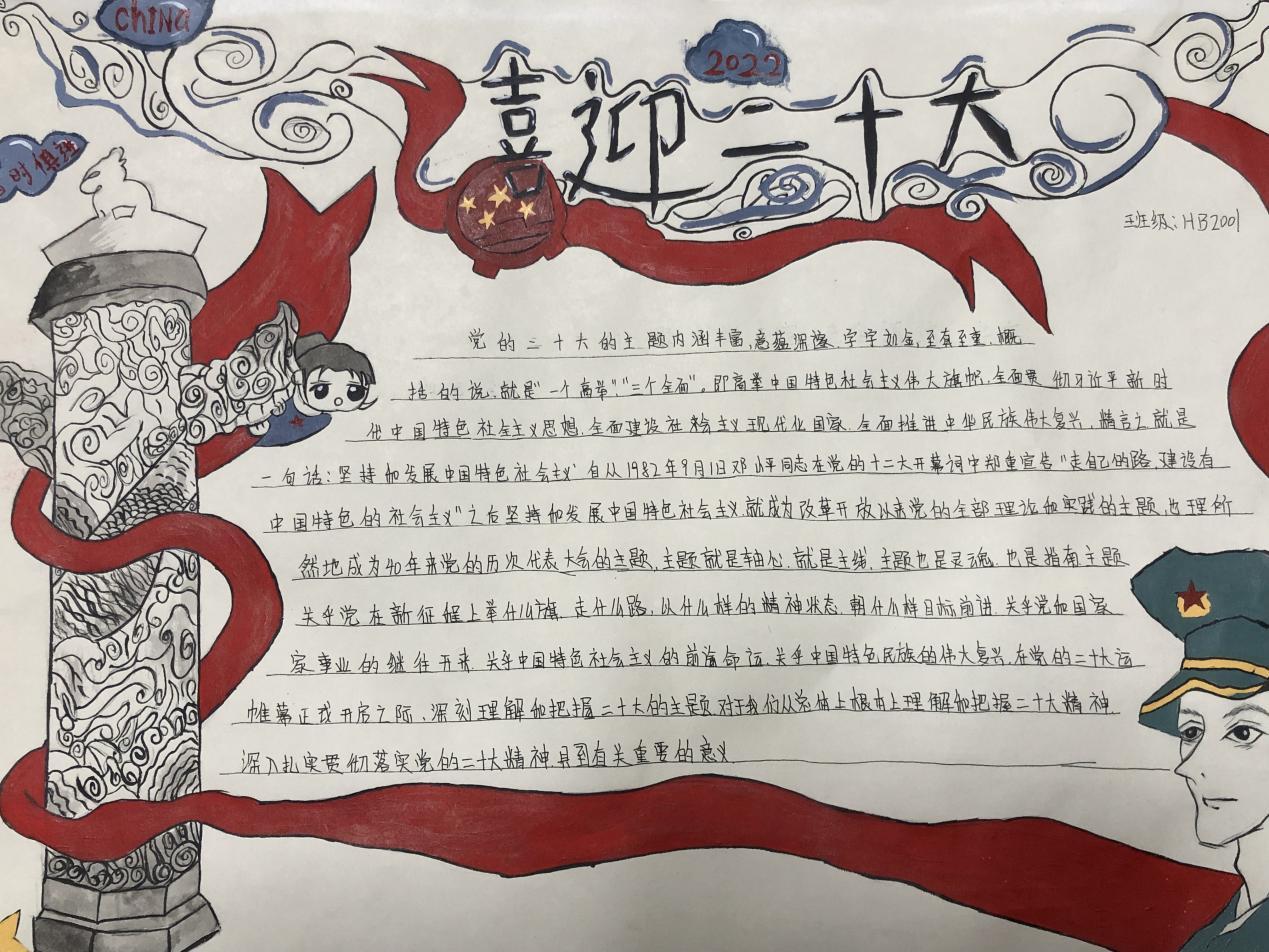 CHINA
2022
喜迎二十大
时俱进
班级:HB2001
党的二十大的主题内涵丰富,意蕴深邃,字字如金,至有至重.概
括的说.就是"一个高举""三个全面"。即高举中国特色社会主义伟大旗帜.全面贯彻习近平新时
代中国特色社会主义思想.全面建设社会主义现代化国家.全面推进中华民族伟大复兴.精言之就是
一句话:坚持和发展中国特色社会主义 自从1982年9月1日邓小平同志在党的十二大开幕词中郑重宣告"走自己的路,建设有
中国特色的社会主义"之后坚持和发展中国特色社会主义.就成为改革开放以来党的全部理论和实践的主题,也理所
然地成为40年来党的历次代表大会的主题,主题就是轴心.就是主线.主题也是灵魂.也是指南主题
关乎党在新征程上举什么旗.走什么路,以什么样的精神状态.朝什么样目标前进.关乎党和国家
家事业的继往开来.关乎中国特色社会主义的前途命运.关乎中国特色民族的伟大复兴.在党的二十大运
帷幕正式开启之际、深刻理解和把握二十大的主题对于我们从总体上根本上理解和把握二十大精神.
深入扎实贯彻落实党的二十大精神具到有关重要的意义